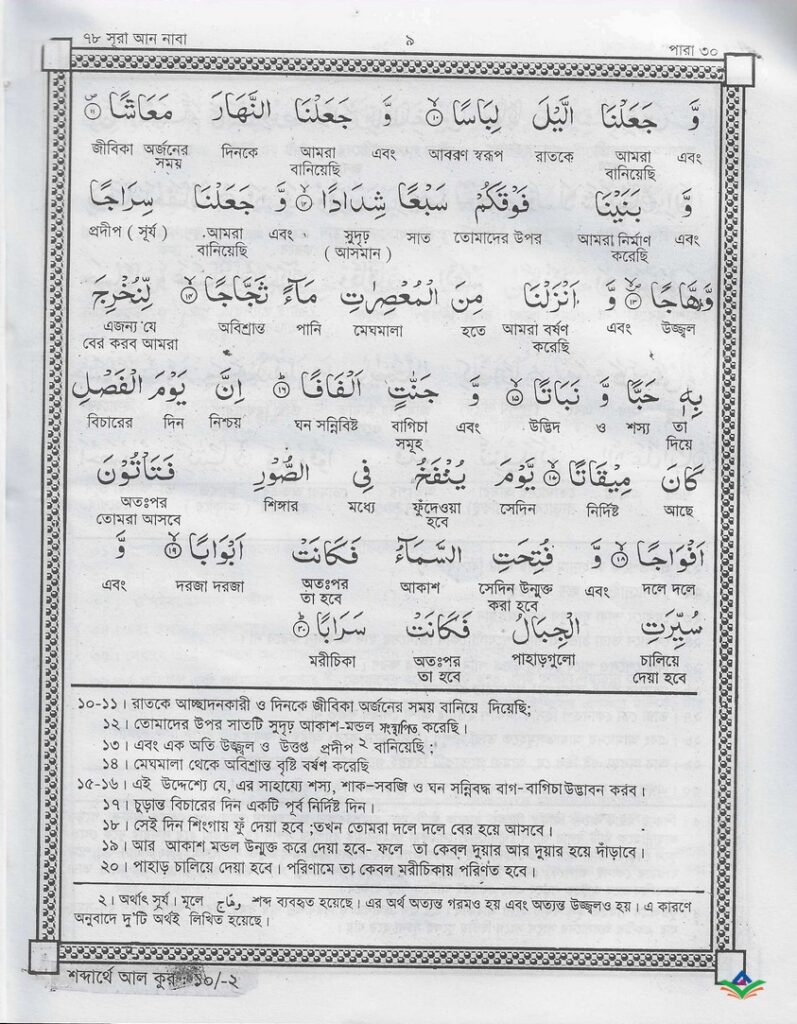 ৭৮ সূরা আন নাবা ৯ পারা ৩০
وَّ جَعَلْنَا الَّيْلَ لِبَاسًا ۙ﴿۱۰﴾ وَّ جَعَلْنَا النَّهَارَ مَعَاشًا ۪﴿۱۱﴾
এবং আমরা বানিয়েছি রাতকে আবরণ স্বরূপ এবং আমরা বানিয়েছি দিনকে জীবিকা অর্জনের সময়
وَّ بَنَيْنَا فَوْقَكُمْ سَبْعًا شِدَادًا ۙ﴿۱۲﴾ وَّ جَعَلْنَا سِرَاجًا
এবং আমরা নির্মাণ করেছি তোমাদের উপর সাত সুদৃঢ় (আসমান) এবং আমরা বানিয়েছি প্রদীপ ( সূর্য )
وَّهَّاجًا ۪ۙ﴿۱۳﴾ وَّ اَنْزَلْنَا مِنَ الْمُعْصِرٰتِ مَآءً ثَجَّاجًا ۙ﴿۱۴﴾ لِّنُخْرِجَ
উজ্জ্বল এবং আমরা বর্ষণ করেছি হতে মেঘমালা পানি অবিশ্রান্ত এজন্য যে বের করব আমরা
بِهٖ حَبًّا وَّ نَبَاتًا ۙ﴿۱۵﴾ وَّ جَنّٰتٍ اَلْفَافًا ؕ﴿۱۶﴾ اِنَّ يَوْمَ الْفَصْلِ
তা দিয়ে শস্য ও উদ্ভিদ এবং বাগিচা সমূহ ঘন সন্নিবিষ্ট নিশ্চয় দিন বিচারের
كَانَ مِيْقَاتًا ۙ﴿۱۷﴾ يَّوْمَ يُنْفَخُ فِي الصُّوْرِ فَتَاْتُوْنَ
আছে নির্দিষ্ট সেদিন ফুঁদেওয়া হবে মধ্যে শিঙ্গার অতঃপর তোমরা আসবে
اَفْوَاجًا ۙ﴿۱۸﴾ وَّ فُتِحَتِ السَّمَآءُ فَكَانَتْ اَبْوَابًا ۙ﴿۱۹﴾ وَّ
দলে দলে এবং সেদিন উন্মুক্ত করা হবে আকাশ অতঃপর তা হবে দরজা দরজা এবং
سُيِّرَتِ الْجِبَالُ فَكَانَتْ سَرَابًا ؕ﴿۲۰﴾
চালিয়ে দেয়া হবে পাহাড়গুলো অতঃপর তা হবে মরীচিকা
১০-১১। রাতকে আচ্ছাদনকারী ও দিনকে জীবিকা অর্জনের সময় বানিয়ে দিয়েছি;
১২। তোমাদের উপর সাতটি সুদৃঢ় আকাশ-মন্ডল সংস্থাপিত করেছি।
১৩। এবং এক অতি উজ্জ্বল ও উত্তপ্ত প্রদীপ ২ বানিয়েছি;
১৪। মেঘমালা থেকে অবিশ্রান্ত বৃষ্টি বর্ষণ করেছি
১৫-১৬। এই উদ্দেশ্যে যে, এর সাহায্যে শস্য, শাক-সবজি ও ঘন সন্নিবদ্ধ বাগ-বাগিচা উদ্ভাবন করব।
১৭। চূড়ান্ত বিচারের দিন একটি পূর্ব নির্দিষ্ট দিন।
১৮। সেই দিন শিংগায় ফুঁ দেয়া হবে ;তখন তোমরা দলে দলে বের হয়ে আসবে।
১৯। আর আকাশ মন্ডল উন্মুক্ত করে দেয়া হবে- ফলে তা কেবল দুয়ার আর দুয়ার হয়ে দাঁড়াবে।
২০। পাহাড় চালিয়ে দেয়া হবে। পরিণামে তা কেবল মরীচিকায় পরিণত হবে।
২। অর্থাৎ সূর্য। মূলে وهاج শব্দ ব্যবহৃত হয়েছে। এর অর্থ অত্যন্ত গরমও হয় এবং অত্যন্ত উজ্জ্বলও হয়। এ কারণে
অনুবাদে দু'টি অর্থই লিখিত হয়েছে।
শব্দার্থে আল কুর ১০/-২